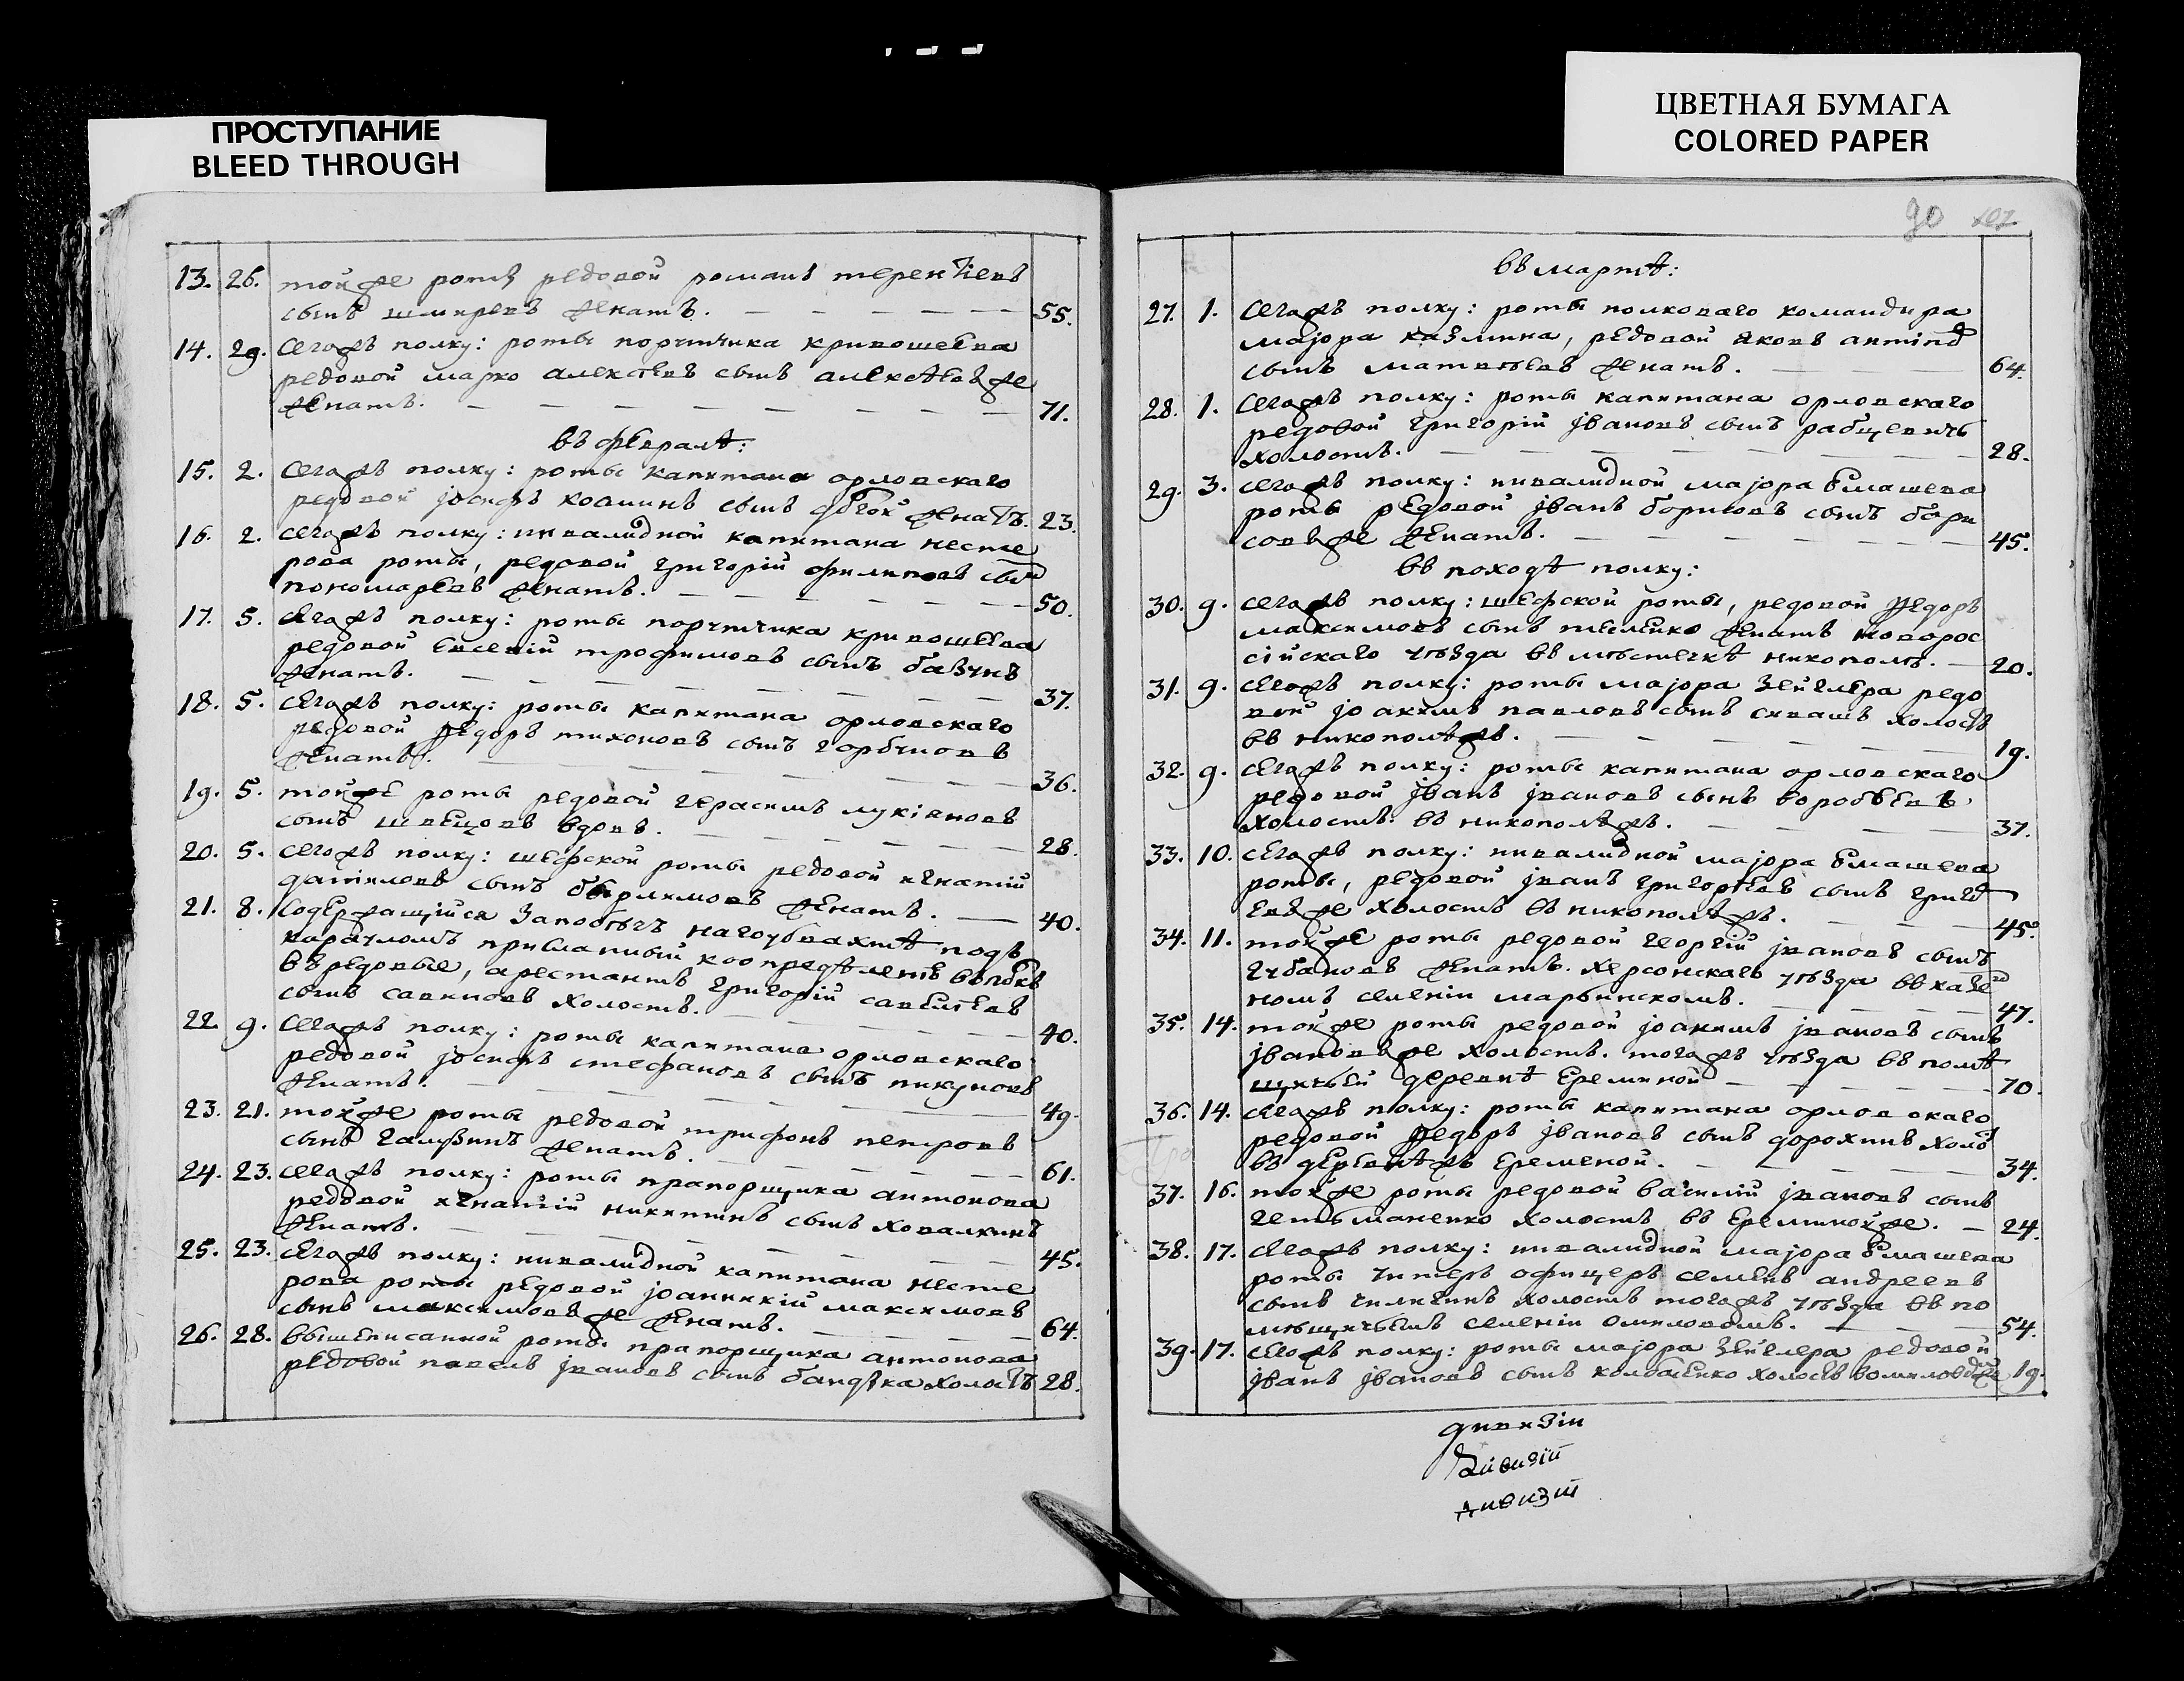 ПРОСТУПАНИЕ
BLEED THROUGH
ЦВЕТНАЯ БУМАГА
COLORED PAPER
13. 26. тойже роты редовой романъ терентіевъ
сынъ шмиревъ женатъ. 55.
14. 29. Сегожъ полку: роты порутчика кривошеева
редовой марко алексѣевъ сынъ алексѣевъже
женатъ. 71.
въ февралѣ:
15. 2. Сегожъ полку: роты капитана орловскаго
редовой іосифъ козминъ сынъ женатъ. 23.
16. 2. сегожъ полку: инвалидной капитана несте
рова роты, редовой григорій филиповъ сынъ
пономаревъ женатъ. 50.
17. 5. сегожъ полку: роты порутчика кривошеева
редовой Евсевій трофимовъ сынъ базунъ
женатъ. 37.
18. 5. сегожъ полку: роты капитана орловскаго
редовой Федоръ тихоновъ сынъ горбуновъ
женатъ. 36.
19. 5. тойже роты редовой герасимъ лукіановъ
сынъ швецовъ вдовъ. 28.
20. 5. сегожъ полку: шефской роты редовой игнатій
даниловъ сынъ женатъ. 40.
21. 8. Содержащійся запобегъ нагоубвахтѣ подъ
карауломъ присланный коопредѣленію въполкъ
въредовые, арестантъ григорій савельевъ
сынъ савиновъ холостъ. 40.
22. 9. Сегожъ полку: роты капитана орловскаго
редовой іосифъ стефановъ сынъ пикуновъ
женатъ. 49.
23. 21. тойже роты редовой трифонъ петровъ
сынъ женатъ. 61.
24. 23. сегожъ полку: роты прапорщика антонова
редовой игнатій никитинъ сынъ ховалкинъ
женатъ. 45.
25. 23. сегожъ полку: инвалидной капитана несте
рова роты редовой іоанникій максимовъ
сынъ максимовъже женатъ. 64.
26. 28. вышеписанной роты прапорщика антонова
редовой павелъ ивановъ сынъ бандука холостъ 28.
90 107.
въ мартѣ:
27. 1. Сегожъ полку: роты полковаго командира
маіора казлина, редовой яковъ антипо
сынъ матвѣевъ женатъ. 64.
28. 1. Сегожъ полку: роты капитана орловскаго
редовой григорій івановъ сынъ рабцевичъ
холостъ. 28.
29. 3. сегожъ полку: инвалидной маіора Елашева
роты редовой іванъ борисовъ сынъ бори
совъже женатъ. 45.
въ походѣ полку:
30. 9. сегожъ полку: шефской роты, редовой Федоръ
максимовъ сынъ темѣнко женатъ новорос
сійскаго уѣзда въ мѣстечкѣ никополѣ. 20.
31. 9. сегожъ полку: роты маіора Зейглера редо
вой іоакимъ павловъ сынъ сивашъ холостъ
въ никополѣжъ. 19.
32. 9. сегожъ полку: роты капитана орловскаго
редовой іванъ івановъ сынъ воробьевъ
холостъ въ никополѣжъ. 37.
33. 10. сегожъ полку: инвалидной маіора Елашева
роты, редовой іванъ григорьевъ сынъ григо
евъже холостъ въ никополѣжъ. 45.
34. 11. тойже роты редовой георгій івановъ сынъ
губановъ женатъ. херсонскаго уѣзда въ казен
номъ селеніи марьинскомъ. 47.
35. 14. тойже роты редовой іоакимъ івановъ сынъ
івановъже холостъ. тогожъ уѣзда въ помѣ
щичьей деревнѣ Ереминой 70.
36. 14. сегожъ полку: роты капитана орловскаго
редовой Федоръ івановъ сынъ дорохинъ холо
въ деревнѣжъ Еременой. 34.
37. 16. тойже роты редовой василій івановъ сынъ
гетьманенко холостъ въ Ереминойже. 24.
38. 17. сегожъ полку: инвалидной маіора Елашева
роты унтеръ офицеръ семенъ андреевъ
сынъ чилигинъ холостъ тогожъ уѣзда въ по
мѣщичьемъ селеніи омиловомъ. 54.
39. 17. сегожъ полку: роты маіора Зейглера редовой
іванъ івановъ сынъ колбасенко холостъ 19.
дивизіи
дивизіи
дивизіи